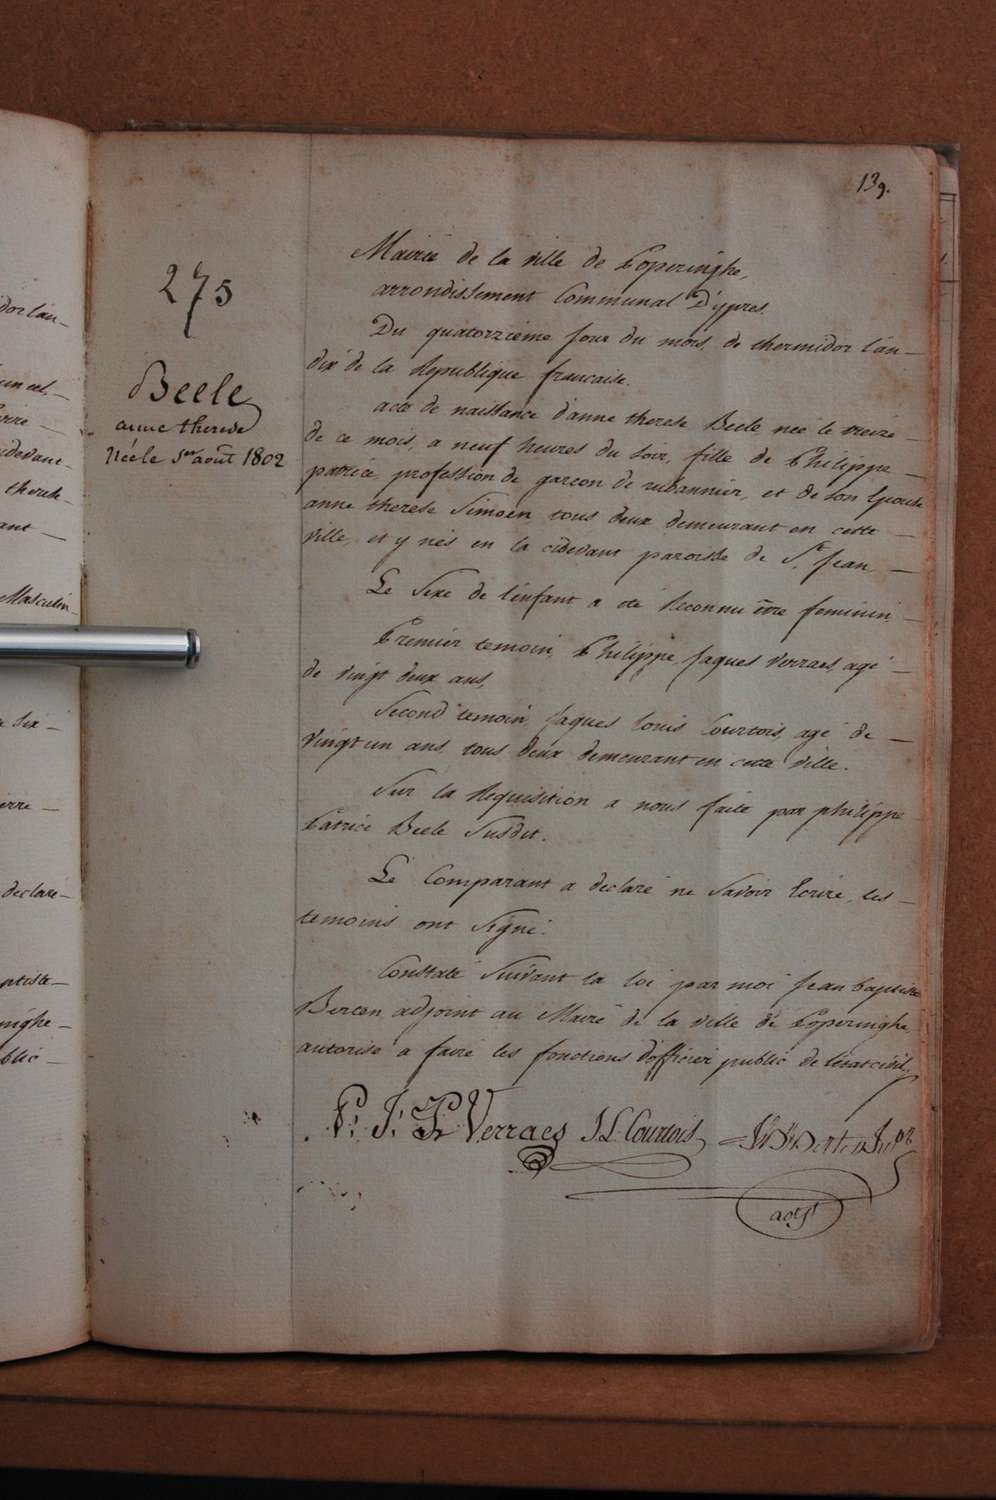 139.
275
Beele
anne therese
Née le 1er août 1802
Mairie de la ville de Poperinghe,
arrondissement Communal D'ypres.
Du quatorzieme jour du mois de thermidor l'an —
dix de la Republique francaise.
acte de naissance d'anne therese Beele née le treize —
de ce mois, a neuf heures du soir, fille de Philippe
patrice, profession de garcon de rubannier, et de son Epouse
anne therese Simoen tous deux demeurant en cette —
ville, et y nés en la cidevant paroisse de St. Jean —
Le Sexe de l'enfant a été Reconnu être feminin —
Premier temoin, Philippe Jaques Verraes, agé —
de vingt deux ans,
Second temoin, Jaques Louis Courtois, agé de —
vingt un ans, tous deux demeurant en cette ville.
Sur la Requisition a nous faite par philippe
Patrice Beele Susdit.
Le Comparant a declaré ne Savoir Ecrire, les —
temoins ont Signé.
Constaté Suivant la loi par moi Jean baptiste
Berten adjoint au Maire de la ville de Poperinghe
autorisé a faire les fonctions d'officier public de l'etat civil,
P: J: Verraes J L Courtois Berten
adjt
dor l'an —
cidevant —
therese —
ant —
Masculin —
e Six —
erre —
declaré —
ptiste —
inghe —
blic —